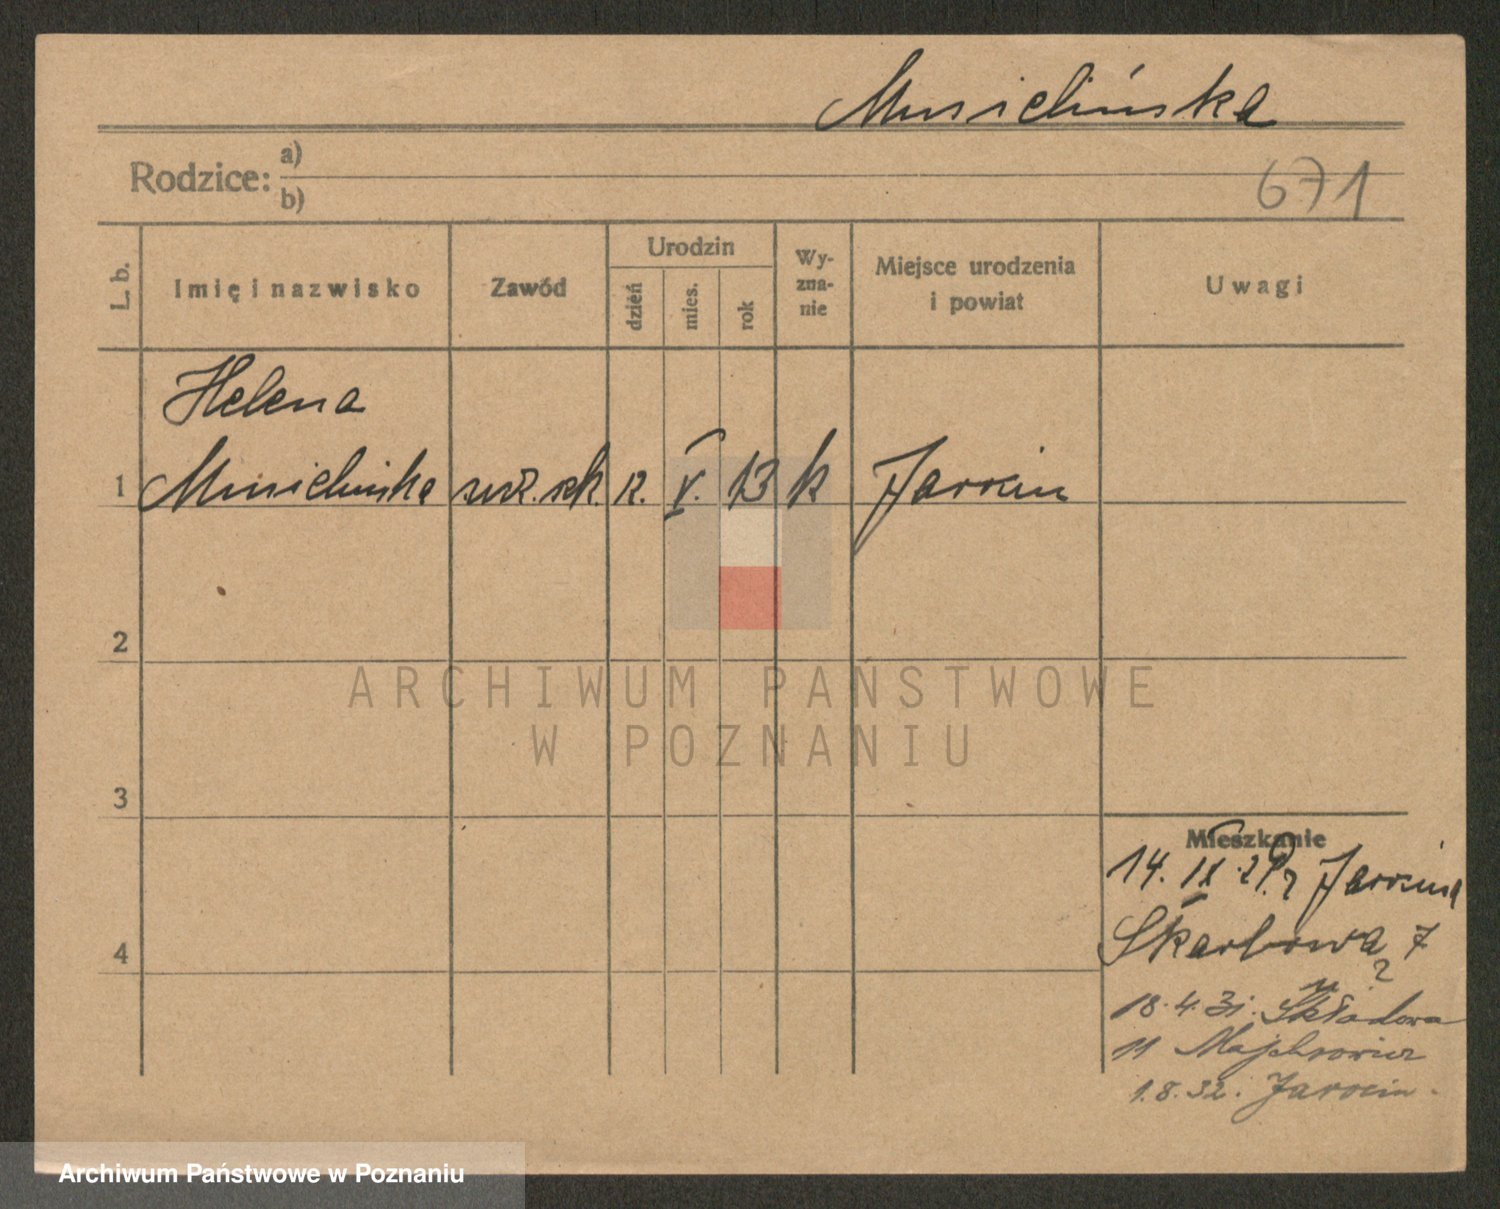 Musielińska
Rodzice: a)
b)
671
L. b.
Imię i nazwisko
Zawód
Urodzin
dzień
mies.
rok
Wy-
zna-
nie
Miejsce urodzenia
i powiat
Uwagi
Helena
1 Musielińska ucz. szk. 12. V. 13 k Jarocin
2
ARCHIWUM PAŃSTWOWE
W POZNANIU
3
Mieszkanie
14. IX. 29. z Jarocina
4
Skarbowa 7
18.4.31. Składowa
11 Majchrowicz
1.8.32. Jarocin.
Archiwum Państwowe w Poznaniu